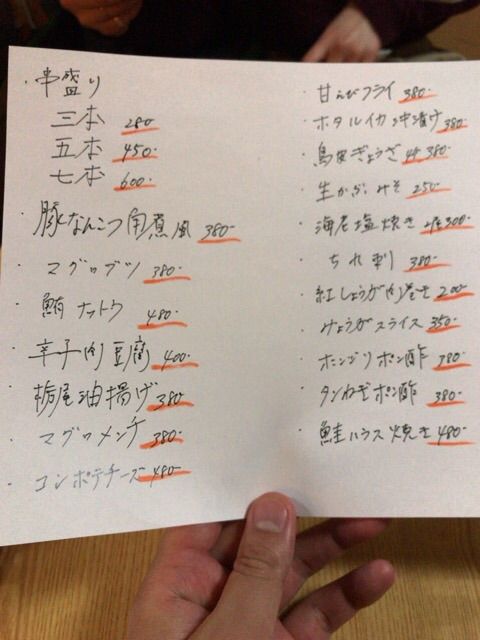 ・串盛り
三本 280-
五本 450-
七本 600-
・豚なんこつ角煮風 380-
・マグロブツ 380-
・鮪ナットウ 480-
・辛子肉豆腐 400-
・栃尾油揚げ 380-
・マグロメンチ 380-
・コンポテチーズ 480-
・甘えびフライ 380-
・ホタルイカ沖漬け 380-
・鳥皮ぎょうざ 380-
・生から みそ 250-
・海老塩焼き 300-
・ちれ刺 380-
・紅しょうが肉巻き 200-
・みょうがスライス 350-
・ホンビリポン酢 380-
・タンねぎポン酢 380-
・鮭ハラス焼き 480-